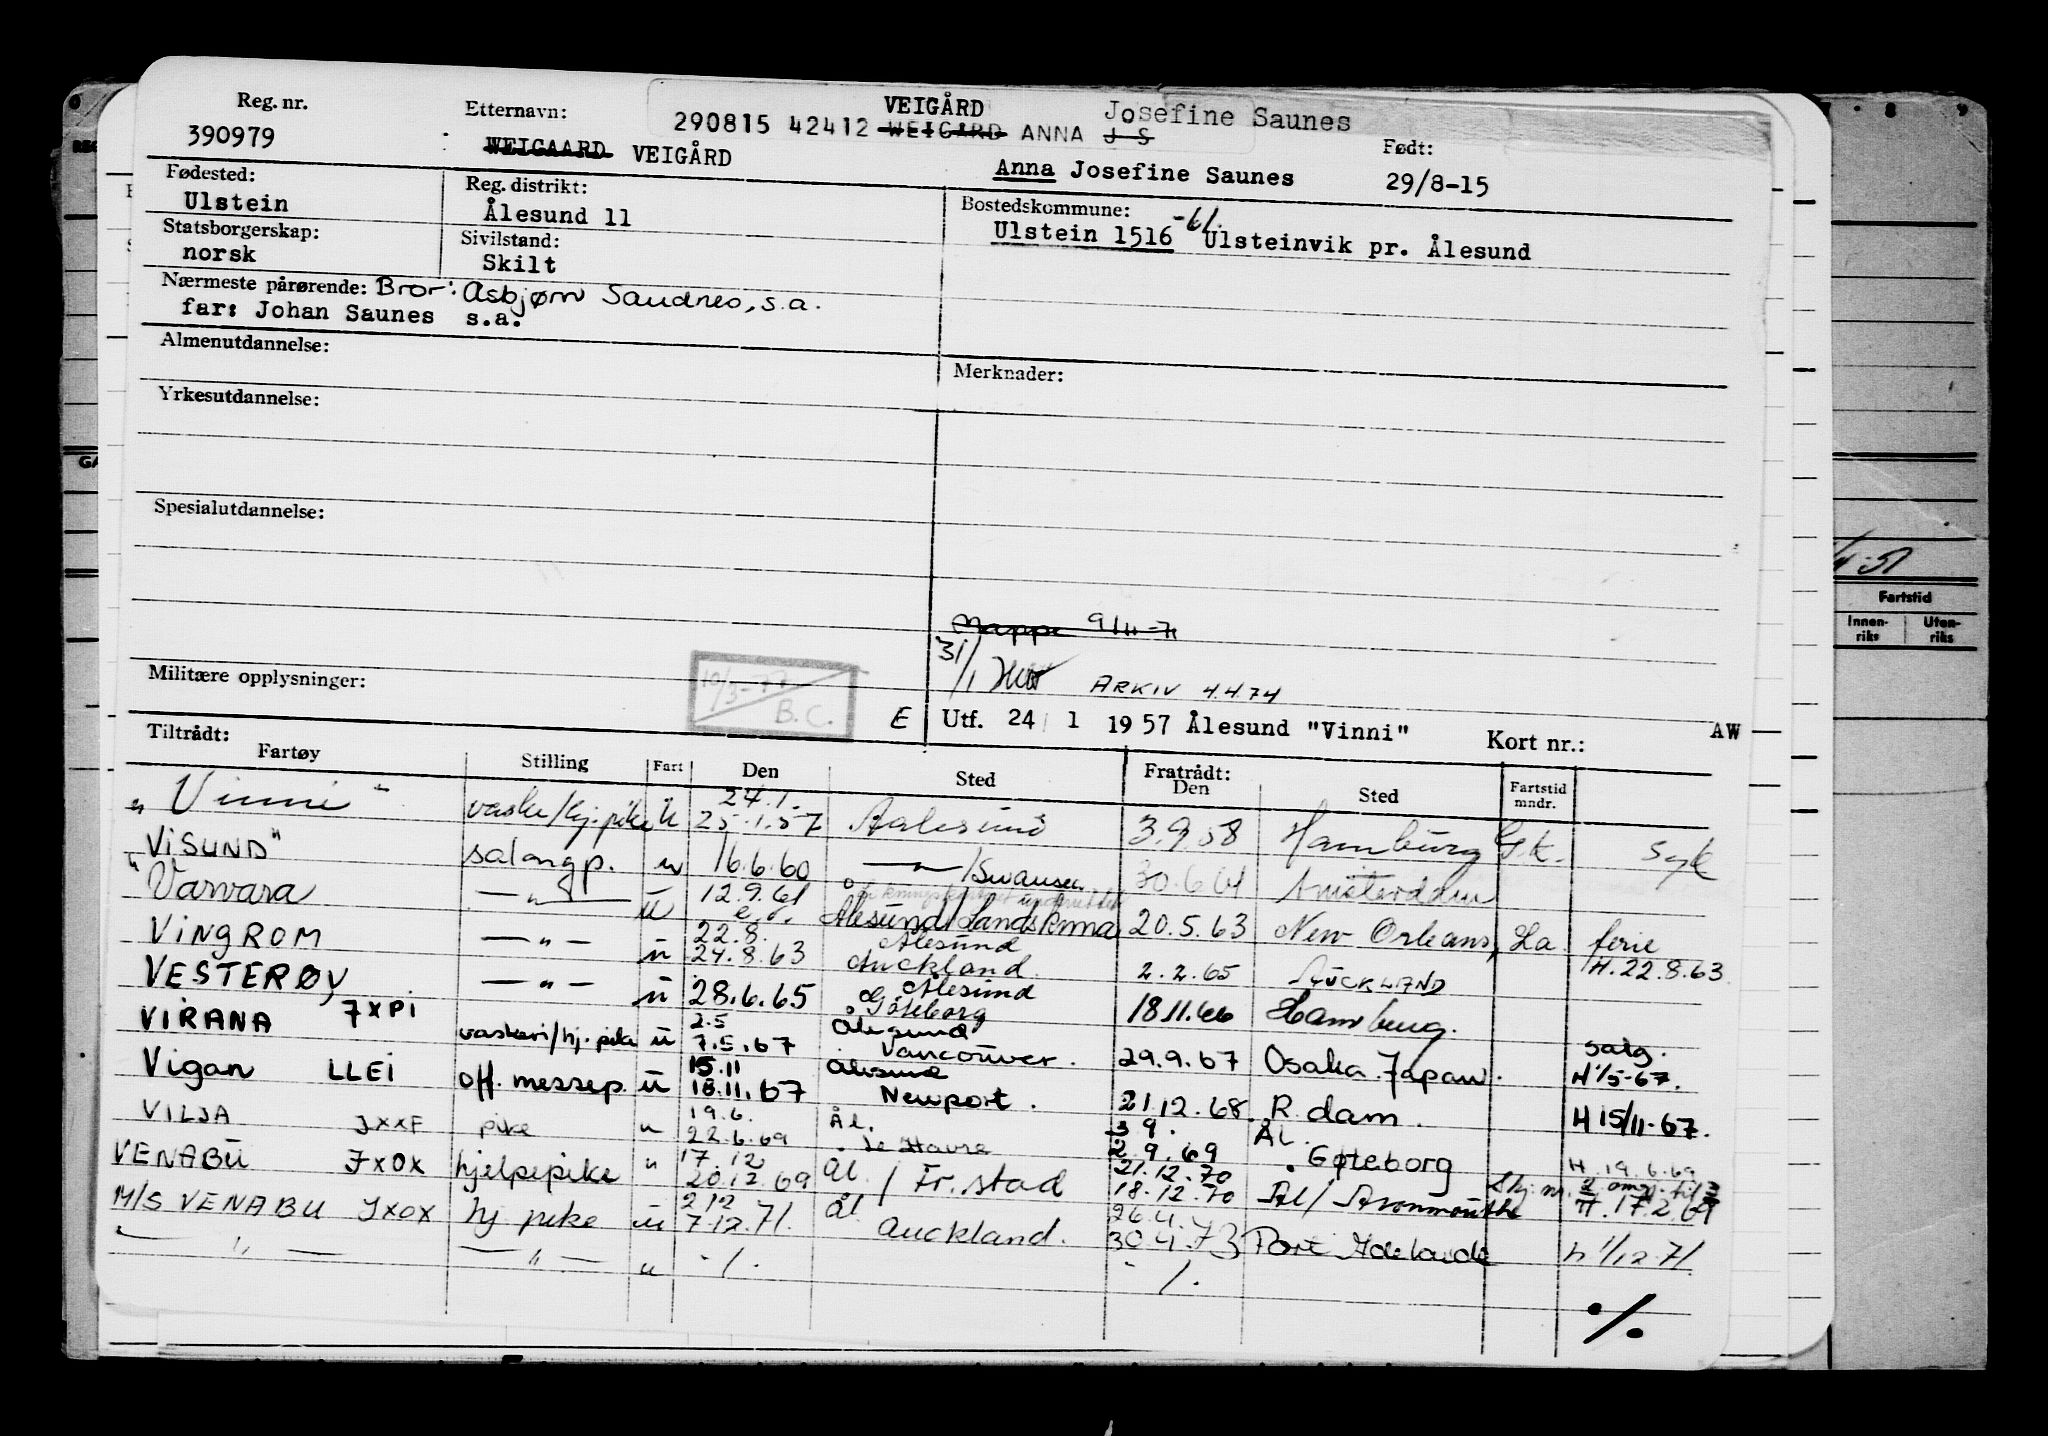 Reg. nr. Etternavn: VEIGÅRD Josefine Saunes
390979 290815 42412 WEIGÅRD ANNA J S
WEIGAARD VEIGÅRD Født:
Anna Josefine Saunes 29/8-15
Fødested: Reg. distrikt: Bostedskommune:
Ulstein Ålesund 11 Ulstein 1516 -61. Ulsteinvik pr. Ålesund
Statsborgerskap: Sivilstand:
norsk Skilt
Nærmeste pårørende: Bror: Asbjørn Saudnes, s.a.
far: Johan Saunes s.a.
Almenutdannelse:
Merknader:
Yrkesutdannelse:
Spesialutdannelse:
Mappe 9/11-71
31/1 ARKIV 4.4.74
Militære opplysninger: 10/3-77 B.C.
E Utf. 24 1 1957 Ålesund "Vinni" Kort nr.: AW
Tiltrådt: Fratrådt:
Fartøy Stilling Fart Den Sted Den Sted Fartstid mndr.
"Vinni" vaske/hj.pike u 24.1. 25.1.57 Aalesund 3.9.58 Hamburg G.k. Syk
"VISUND" salongp. u 16.6.60 —"— /Swansea 30.6.61 Amsterdam
"Varvara —"— u 12.9.61 e.o. Ålesund/Landskrona 20.5.63 New Orleans, La. ferie
VINGROM —"— u 22.8. 24.8.63 Ålesund Auckland 2.2.65 AUCKLAND H.22.8.63.
VESTERØY —"— u 28.6.65 Ålesund Göteborg 18.11.66 Hamburg.
VIRANA JXPI vaskeri/hj. pike u 2.5 7.5.67 Ålesund Vancouver. 29.9.67 Osaka Japan. salg. H 1/5-67.
Vigan LLEI off. messep. u 15.11 18.11.67 Ålesund Newport. 21.12.68. R.dam. H 15/11-67.
VILJA JXXF pike u 19.6. 22.6.69 Ål. Le Havre 3 9. 2.9.69 ÅL. Gøteborg H. 19.6.69
VENABU JXOX hjelpepike u 17.12 20.12.69 Ål. / Fr.stad 21.12.70 18.12.70 Ål/ Avonmouth H. 17.2.69
M/S VENABU JXOX hj pike u 2 12 7.12.71. Ål Auckland. 26.4. 30.4.73 Port Adelaide h 1/12.71.
—"— —"— u ./. ./.
./.
REG
GA
7 8 9
/4-51
Fartstid
Innen-riks Uten-riks